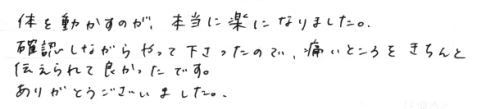 体を動かすのが、本当に楽になりました。
確認しながらやって下さったので、痛いところをきちんと
伝えられて良かったです。
ありがとうございました。